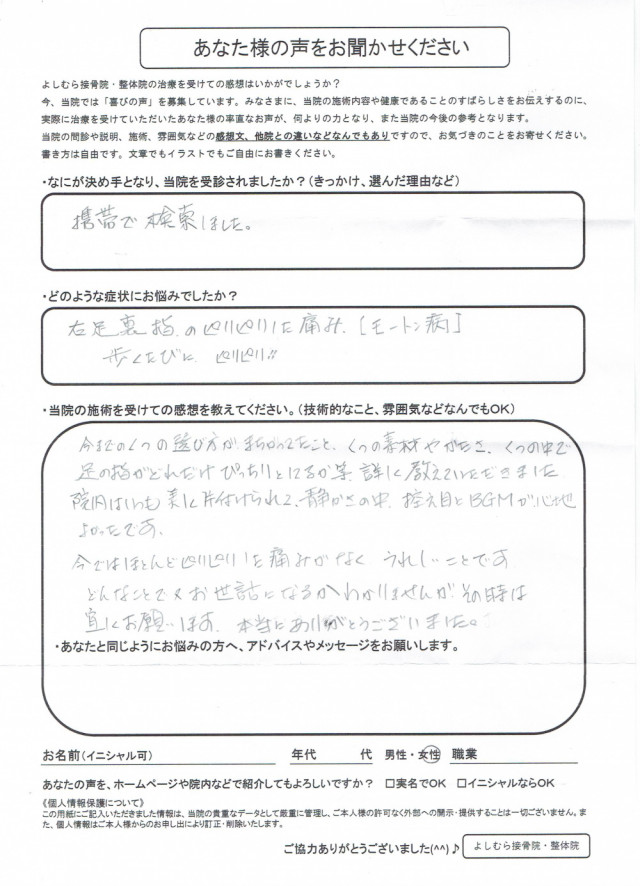 あなた様の声をお聞かせください
よしむら接骨院・整体院の治療を受けての感想はいかがでしょうか？
今、当院では「喜びの声」を募集しています。みなさまに、当院の施術内容や健康であることのすばらしさをお伝えするのに、
実際に治療を受けていただいたあなた様の率直なお声が、何よりの力となり、また当院の今後の参考となります。
当院の問診や説明、施術、雰囲気などの感想文、他院との違いなどなんでもありですので、お気づきのことをお寄せください。
書き方は自由です。文章でもイラストでもご自由にお書きください。
・なにが決め手となり、当院を受診されましたか？（きっかけ、選んだ理由など）
携帯で検索しました。
・どのような症状にお悩みでしたか？
右足裏指のピリピリした痛み.［モートン病］
歩くたびに ピリピリ!!
・当院の施術を受けての感想を教えてください。（技術的なこと、雰囲気などなんでもOK）
今までのくつの選び方がまちがってたこと、くつの素材やかたさ、くつの中で
足の指がどれだけぴっちりとしてるか等 詳しく教えていただきました
院内はいつも美しく片付けられて、静かさの中、控え目なBGMが心地
よかったです。
今ではほとんどピリピリした痛みがなく うれしいことです
どんなことでまたお世話になるかわかりませんが その時は
宜しくお願いします. 本当にありがとうございました。
・あなたと同じようにお悩みの方へ、アドバイスやメッセージをお願いします。
お名前（イニシャル可） 年代 代 男性・女性 職業
あなたの声を、ホームページや院内などで紹介してもよろしいですか？ □実名でOK □イニシャルならOK
《個人情報保護について》
この用紙にご記入いただきました情報は、当院の貴重なデータとして厳重に管理し、ご本人様の許可なく外部への開示・提供することは一切ございません。ま
た、個人情報はご本人様からのお申し出により訂正・削除いたします。
ご協力ありがとうございました(^^)♪ よしむら接骨院・整体院